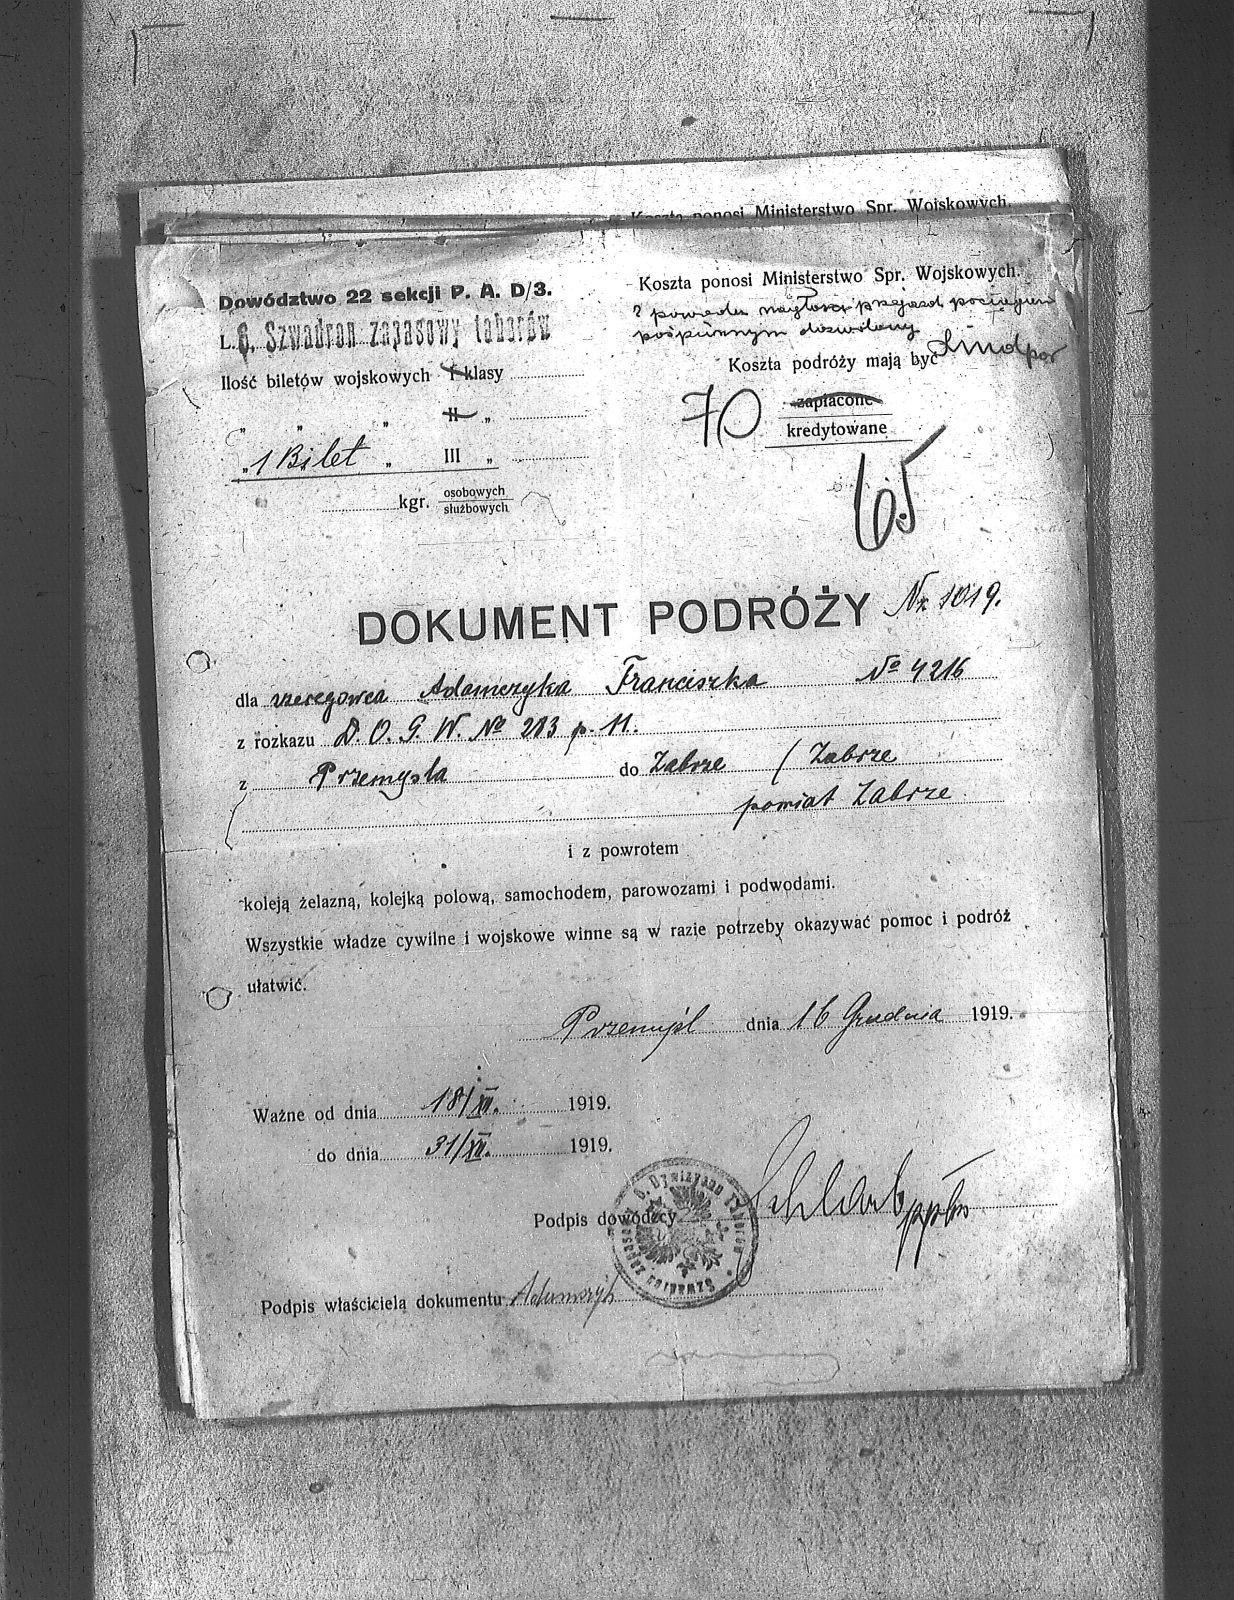 Koszta ponosi Ministerstwo Spr. Wojskowych.
Dowództwo 22 sekcji P. A. D/3.
L. 6. Szwadron zapasowy taborów
Ilość biletów wojskowych I klasy
" " " II "
" 1 Bilet " III "
kgr. osobowych
służbowych
Koszta ponosi Ministerstwo Spr. Wojskowych.
z powodu nagłości przejazd pociągiem
pośpiesznym dozwolony
Koszta podróży mają być
70 zapłacone
kredytowane
65
DOKUMENT PODRÓŻY Nr. 1019.
dla szeregowca Adamczyka Franciszka No 4216
z rozkazu D. O. G. W. No 213 p. 11.
z Przemyśla do Zabrze / Zabrze
powiat Zabrze
i z powrotem
koleją żelazną, kolejką polową, samochodem, parowozami i podwodami.
Wszystkie władze cywilne i wojskowe winne są w razie potrzeby okazywać pomoc i podróż
ułatwić.
Przemyśl dnia 16 Grudnia 1919.
Ważne od dnia 18/XII. 1919.
do dnia 31/XII. 1919.
Podpis dowódcy ppłk
Szwadron zapasowy 6. Dywizyonu Taborów
Podpis właściciela dokumentu Adamczyk